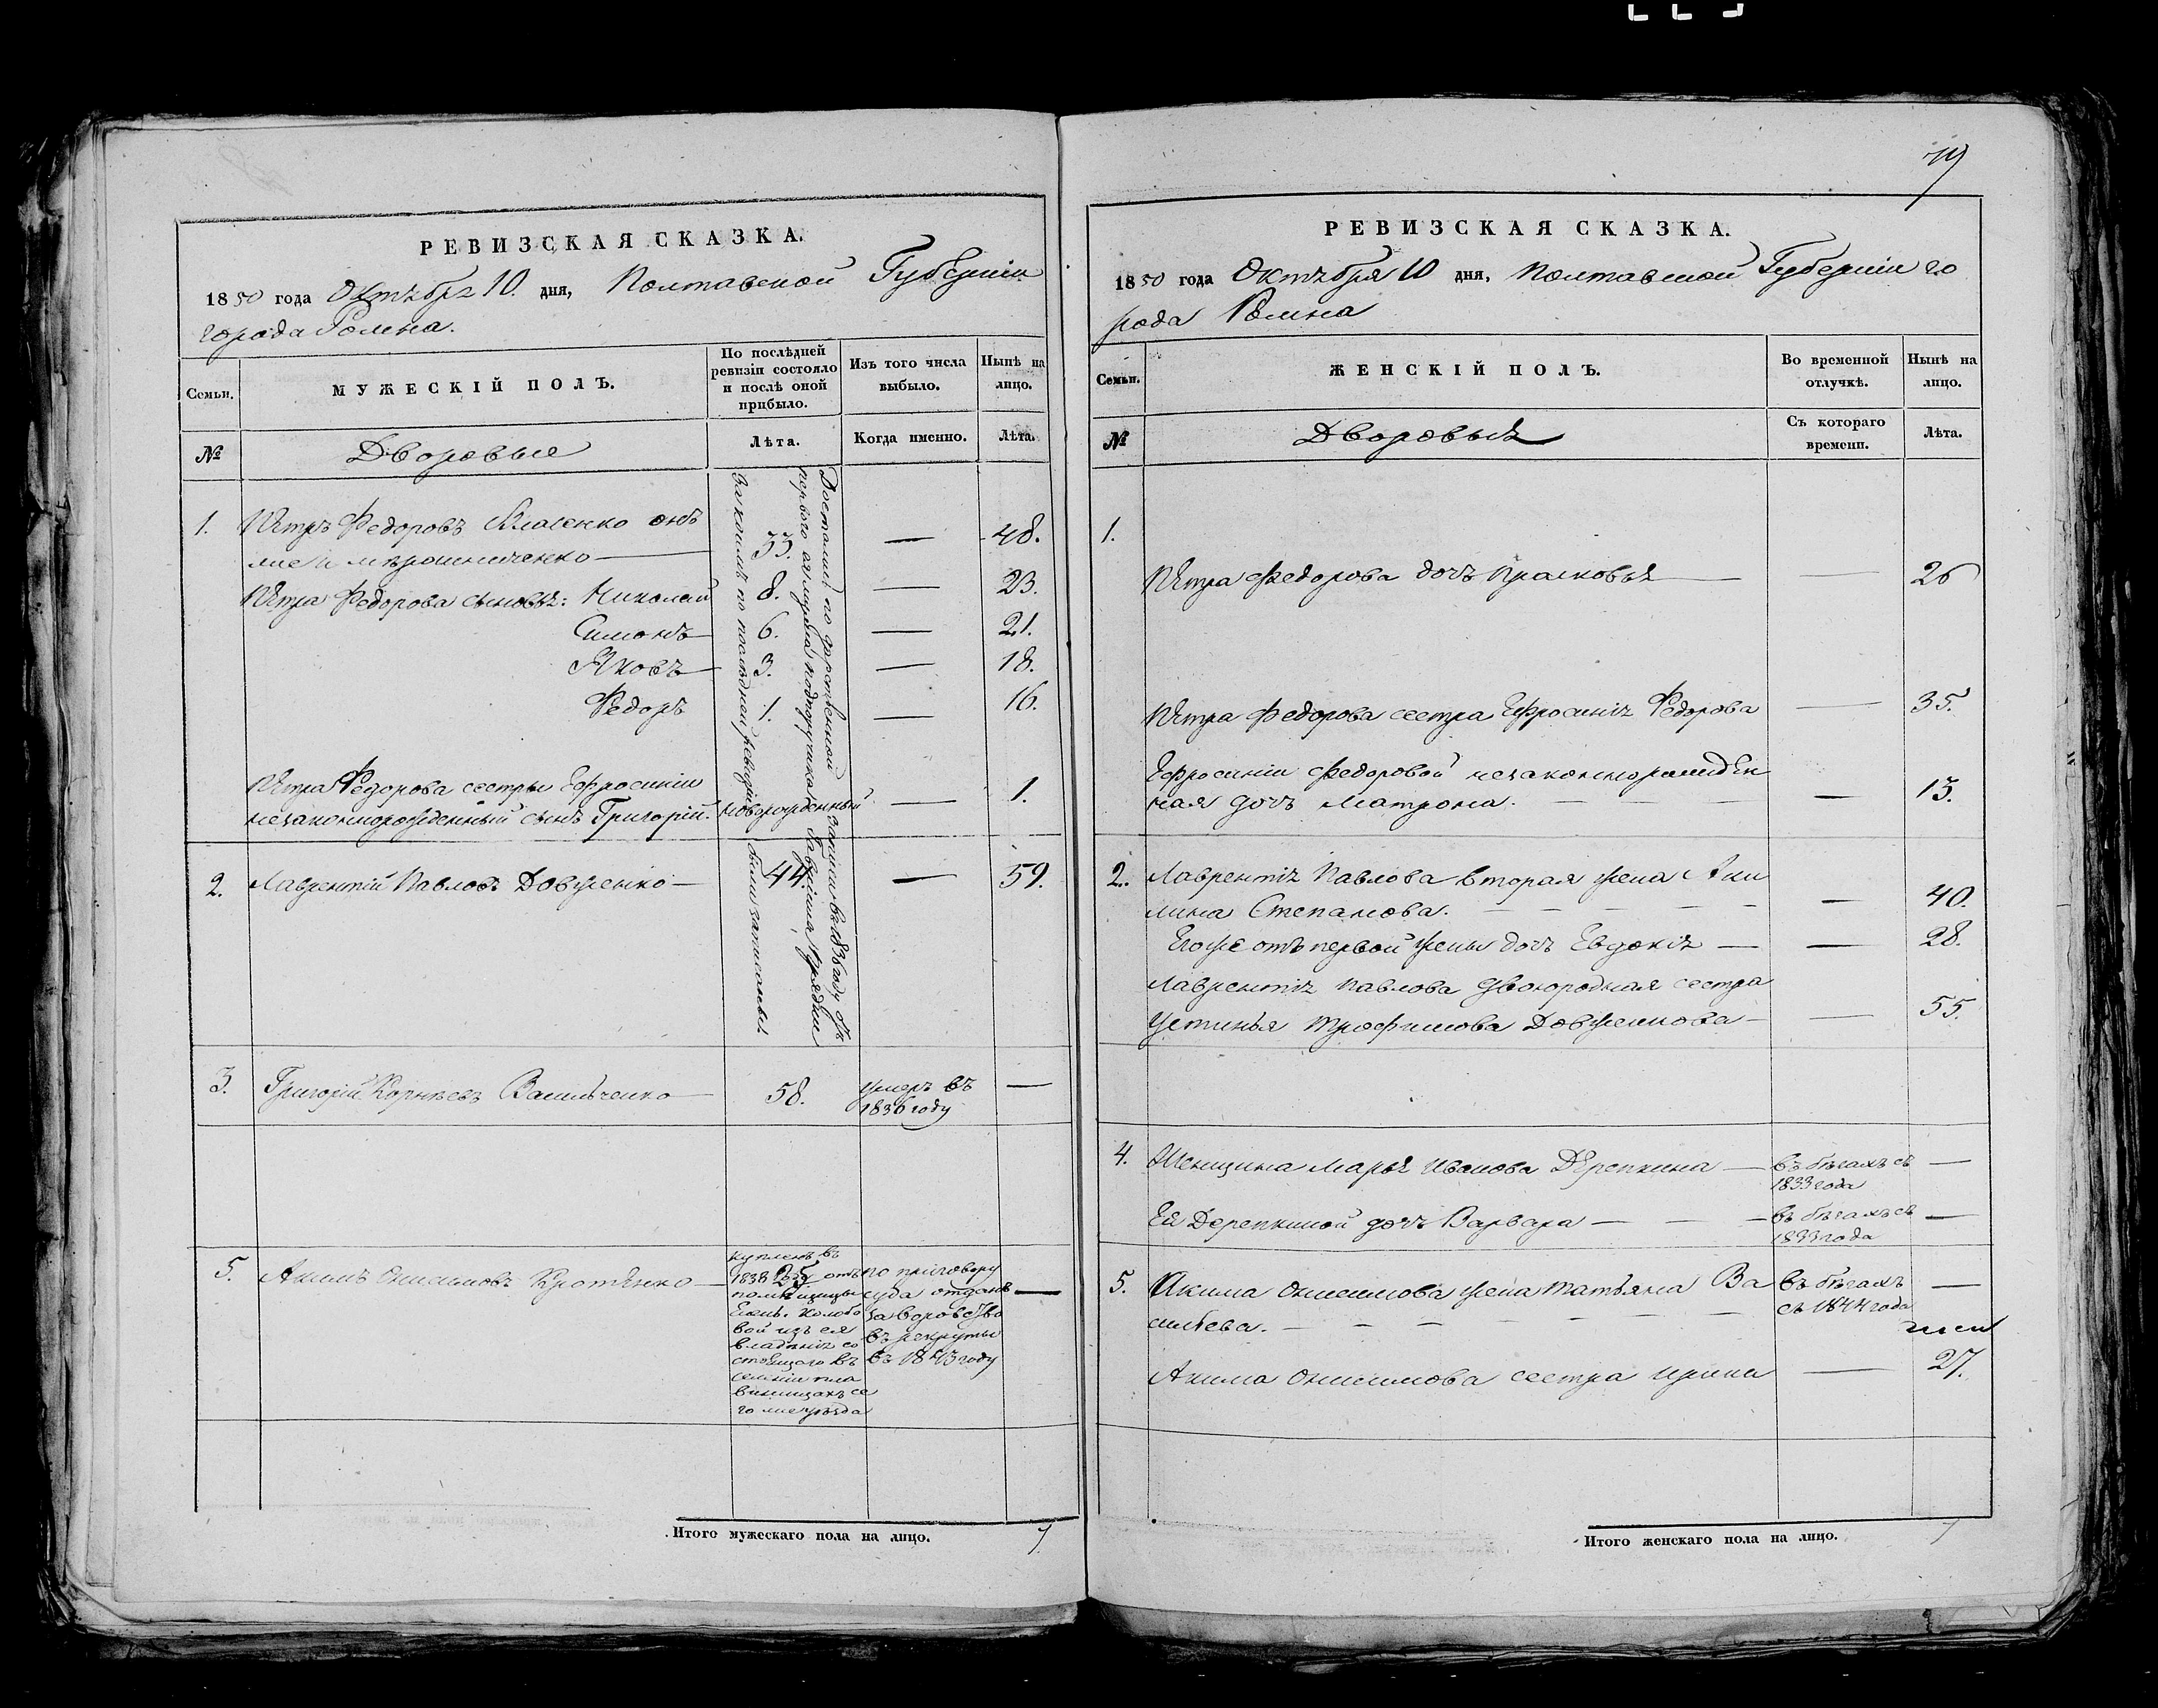 79
РЕВИЗСКАЯ СКАЗКА.
1850 года Октября 10. дня, Полтавской Губерніи
города Ромна.
Семьи.
МУЖЕСКІЙ ПОЛЪ.
По послѣдней
ревизіи состояло
и послѣ оной
прибыло.
Изъ того числа
выбыло.
Нынѣ на
лицо.
№
Дворовые
Лѣта.
Когда именно.
Лѣта.
Достались по дарственной записи въ 1836 году отъ
первого
за коимъ по последней ревизіи были записаны
1. Петръ Федоровъ онъ 33. — 48.
же и Мѣрошниченко
Петра Федорова сыновья: Николай 8. — 23.
Симонъ 6. — 21.
Яковъ 3. — 18.
Федоръ 1. — 16.
Петра Федорова сестры Ефросиніи
незаконнорожденный сынъ Григорій. новорожденный — 1.
2. Лаврентій Павловъ Довженко — 44. — 59.
3. Григорій Корнѣевъ Васильченко 58. умеръ въ —
1836 году
5. Акимъ Онисимовъ Кротенко — 25.
купленъ въ
1838 году отъ
помѣщицы
Колобо
вой изъ ея
владѣнія со
стоящаго въ
селеніи Пла
винищахъ се
го же уезда
по приговору
суда отданъ —
за воровство
въ рекруты
въ 1843 году
Итого мужескаго пола на лицо. 7
РЕВИЗСКАЯ СКАЗКА.
1850 года Октября 10 дня, Полтавской Губерніи го
рода Ромна
Семьи.
ЖЕНСКІЙ ПОЛЪ.
Во временной
отлучкѣ.
Нынѣ на
лицо.
№
Дворовыя
Съ котораго
времени.
Лѣта.
1.
Петра Федорова дочь Прасковья — 26
Петра Федорова сестра Ефросинія Федорова — 35.
Ефросиніи Федоровой незаконнорожден
ная дочь Матрона. — 13.
2. Лаврентія Павлова вторая жена Аки
лина Степанова. — 40.
Его же отъ первой жены дочь Евдокія — 28.
Лаврентія Павлова двоюродная сестра
Устинья Трофимова Довженкова — 55.
4. Женщина Марья Иванова Дерепкина — въ бѣгахъ съ —
1833 года
Ея Дерепкиной дочь Варвара — въ бѣгахъ съ —
1833 года
5. Акима Онисимова жена Татьяна Ва въ бѣгахъ —
сильева. съ 1844 года
Акима Онисимова сестра Ирина — 27.
Итого женскаго пола на лицо. 7